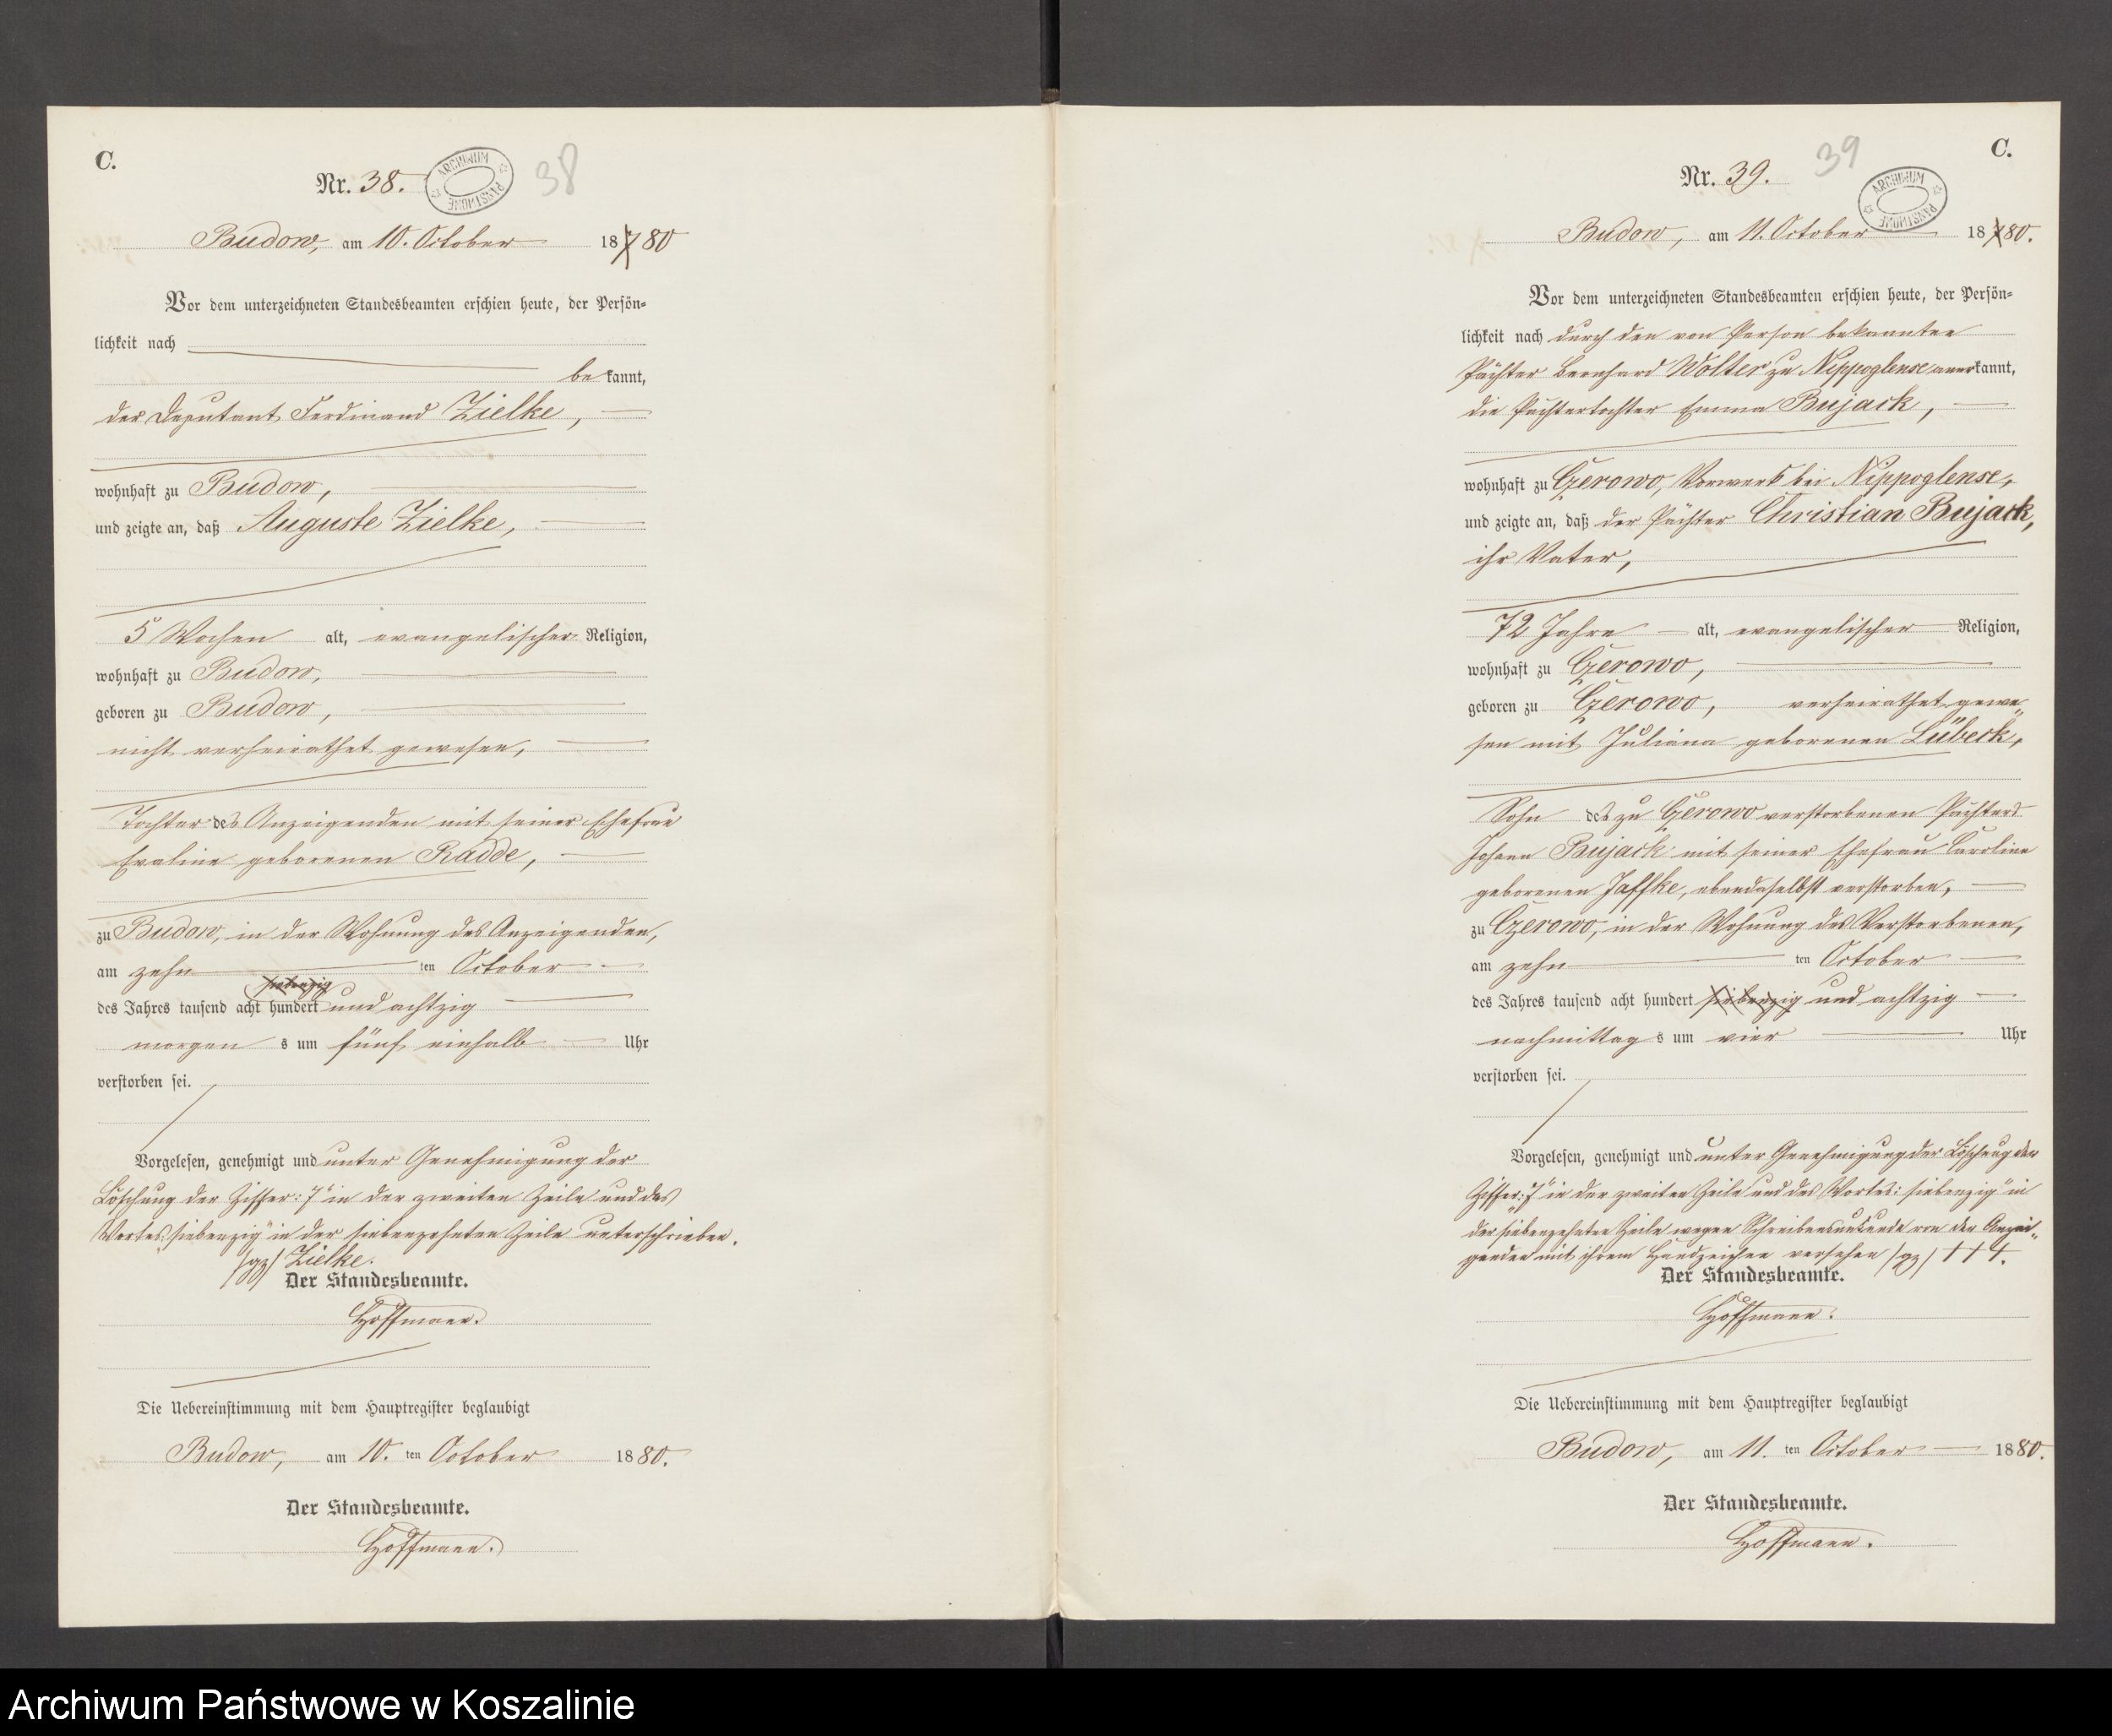 C.
Nr. 38.
ARCHIWUM PAŃSTWOWE
38
Budow, am 10. October 1880
Vor dem unterzeichneten Standesbeamten erschien heute, der Persön=
lichkeit nach
bekannt,
der Deputant Ferdinand Zielke,
wohnhaft zu Budow,
und zeigte an, daß Auguste Zielke,
5 Wochen alt, evangelischer Religion,
wohnhaft zu Budow,
geboren zu Budow,
nicht verheirathet gewesen,
Tochter des Anzeigenden mit seiner Ehefrau
Evaline geborenen Radde,
zu Budow, in der Wohnung des Anzeigenden,
am zehn ten October
siebenzig
des Jahres tausend acht hundert und achtzig
morgen s um fünf einhalb Uhr
verstorben sei.
Vorgelesen, genehmigt und unter Genehmigung der
Löschung der Ziffer: „7“ in der zweiten Zeile und des
Wortes „siebenzig“ in der siebenzehnten Zeile unterschrieben.
(gz) Zielke.
Der Standesbeamte.
Hoffmann.
Die Uebereinstimmung mit dem Hauptregister beglaubigt
Budow, am 10. ten October 1880.
Der Standesbeamte.
Hoffmann.
C.
39
Nr. 39.
ARCHIWUM PAŃSTWOWE
Budow, am 11. October 1880.
Vor dem unterzeichneten Standesbeamten erschien heute, der Persön=
lichkeit nach durch den von Person bekannten
Pächter Bernhard Wolter zu Nippoglense anerkannt,
die Pächtertochter Emma Bujack,
wohnhaft zu Czerowo, Vorwerk bei Nippoglense,
und zeigte an, daß der Pächter Christian Bujack,
ihr Vater,
72 Jahre alt, evangelischer Religion,
wohnhaft zu Czerowo,
geboren zu Czerowo, verheirathet gewe„
sen mit Juliana geborenen Lübeck,
Sohn des zu Czerowo verstorbenen Pächters
Johann Bujack mit seiner Ehefrau Caroline
geborenen Jaffke, ebendaselbst verstorben,
zu Czerowo, in der Wohnung des Verstorbenen,
am zehn ten October
des Jahres tausend acht hundert siebenzig und achtzig
nachmittag s um vier Uhr
verstorben sei.
Vorgelesen, genehmigt und unter Genehmigung der Löschung der
Ziffer: „7“ in der zweiten Zeile und des Wortes: „siebenzig“ in
der siebenzehnten Zeile wegen Schreibensunkunde von der Anzei„
genden mit ihrem Handzeichen versehen (gz) +++.
Der Standesbeamte.
Hoffmann.
Die Uebereinstimmung mit dem Hauptregister beglaubigt
Budow, am 11. ten October 1880.
Der Standesbeamte.
Hoffmann.
Archiwum Państwowe w Koszalinie